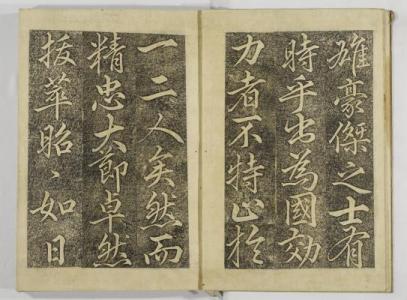 雄豪傑之士有
時乎出為國効
力者不特止於
一二人矣然而
精忠大節卓然
拔萃昭〻如日